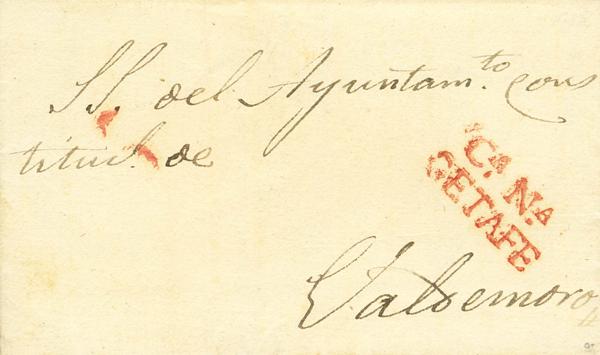 SS. del Ayuntam.to cons
titucl. de
Cª. Nª.
GETAFE
Valdemoro